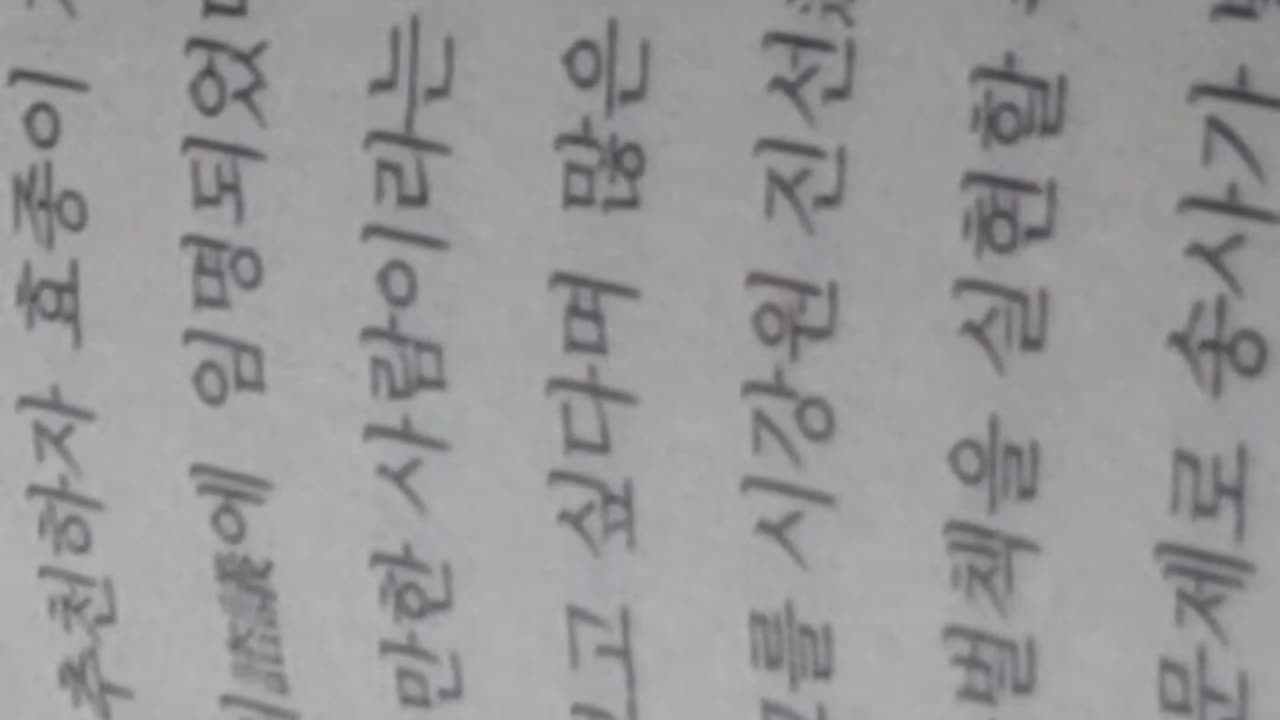 추천하자 효종이
에 임명되었
만한 사람이라는
고 싶다며 많은
를 시강원 진선
벌책을 실현할
문제로 송사가